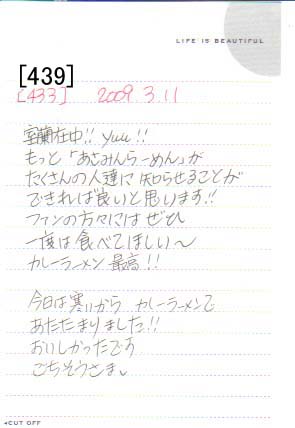 LIFE IS BEAUTIFUL
[439]
[433] 2009.3.11
室蘭在中!! yuu!!
もっと「あさみんらーめん」が
たくさんの人達に知らせることが
できれば良いと思います!!
ファンの方々には ぜひ
一度は食べてほしい〜
カレーラーメン 最高!!
今日は寒いから カレーラーメンで
あたたまりました!!
おいしかったです
ごちそうさま。
◂CUT OFF